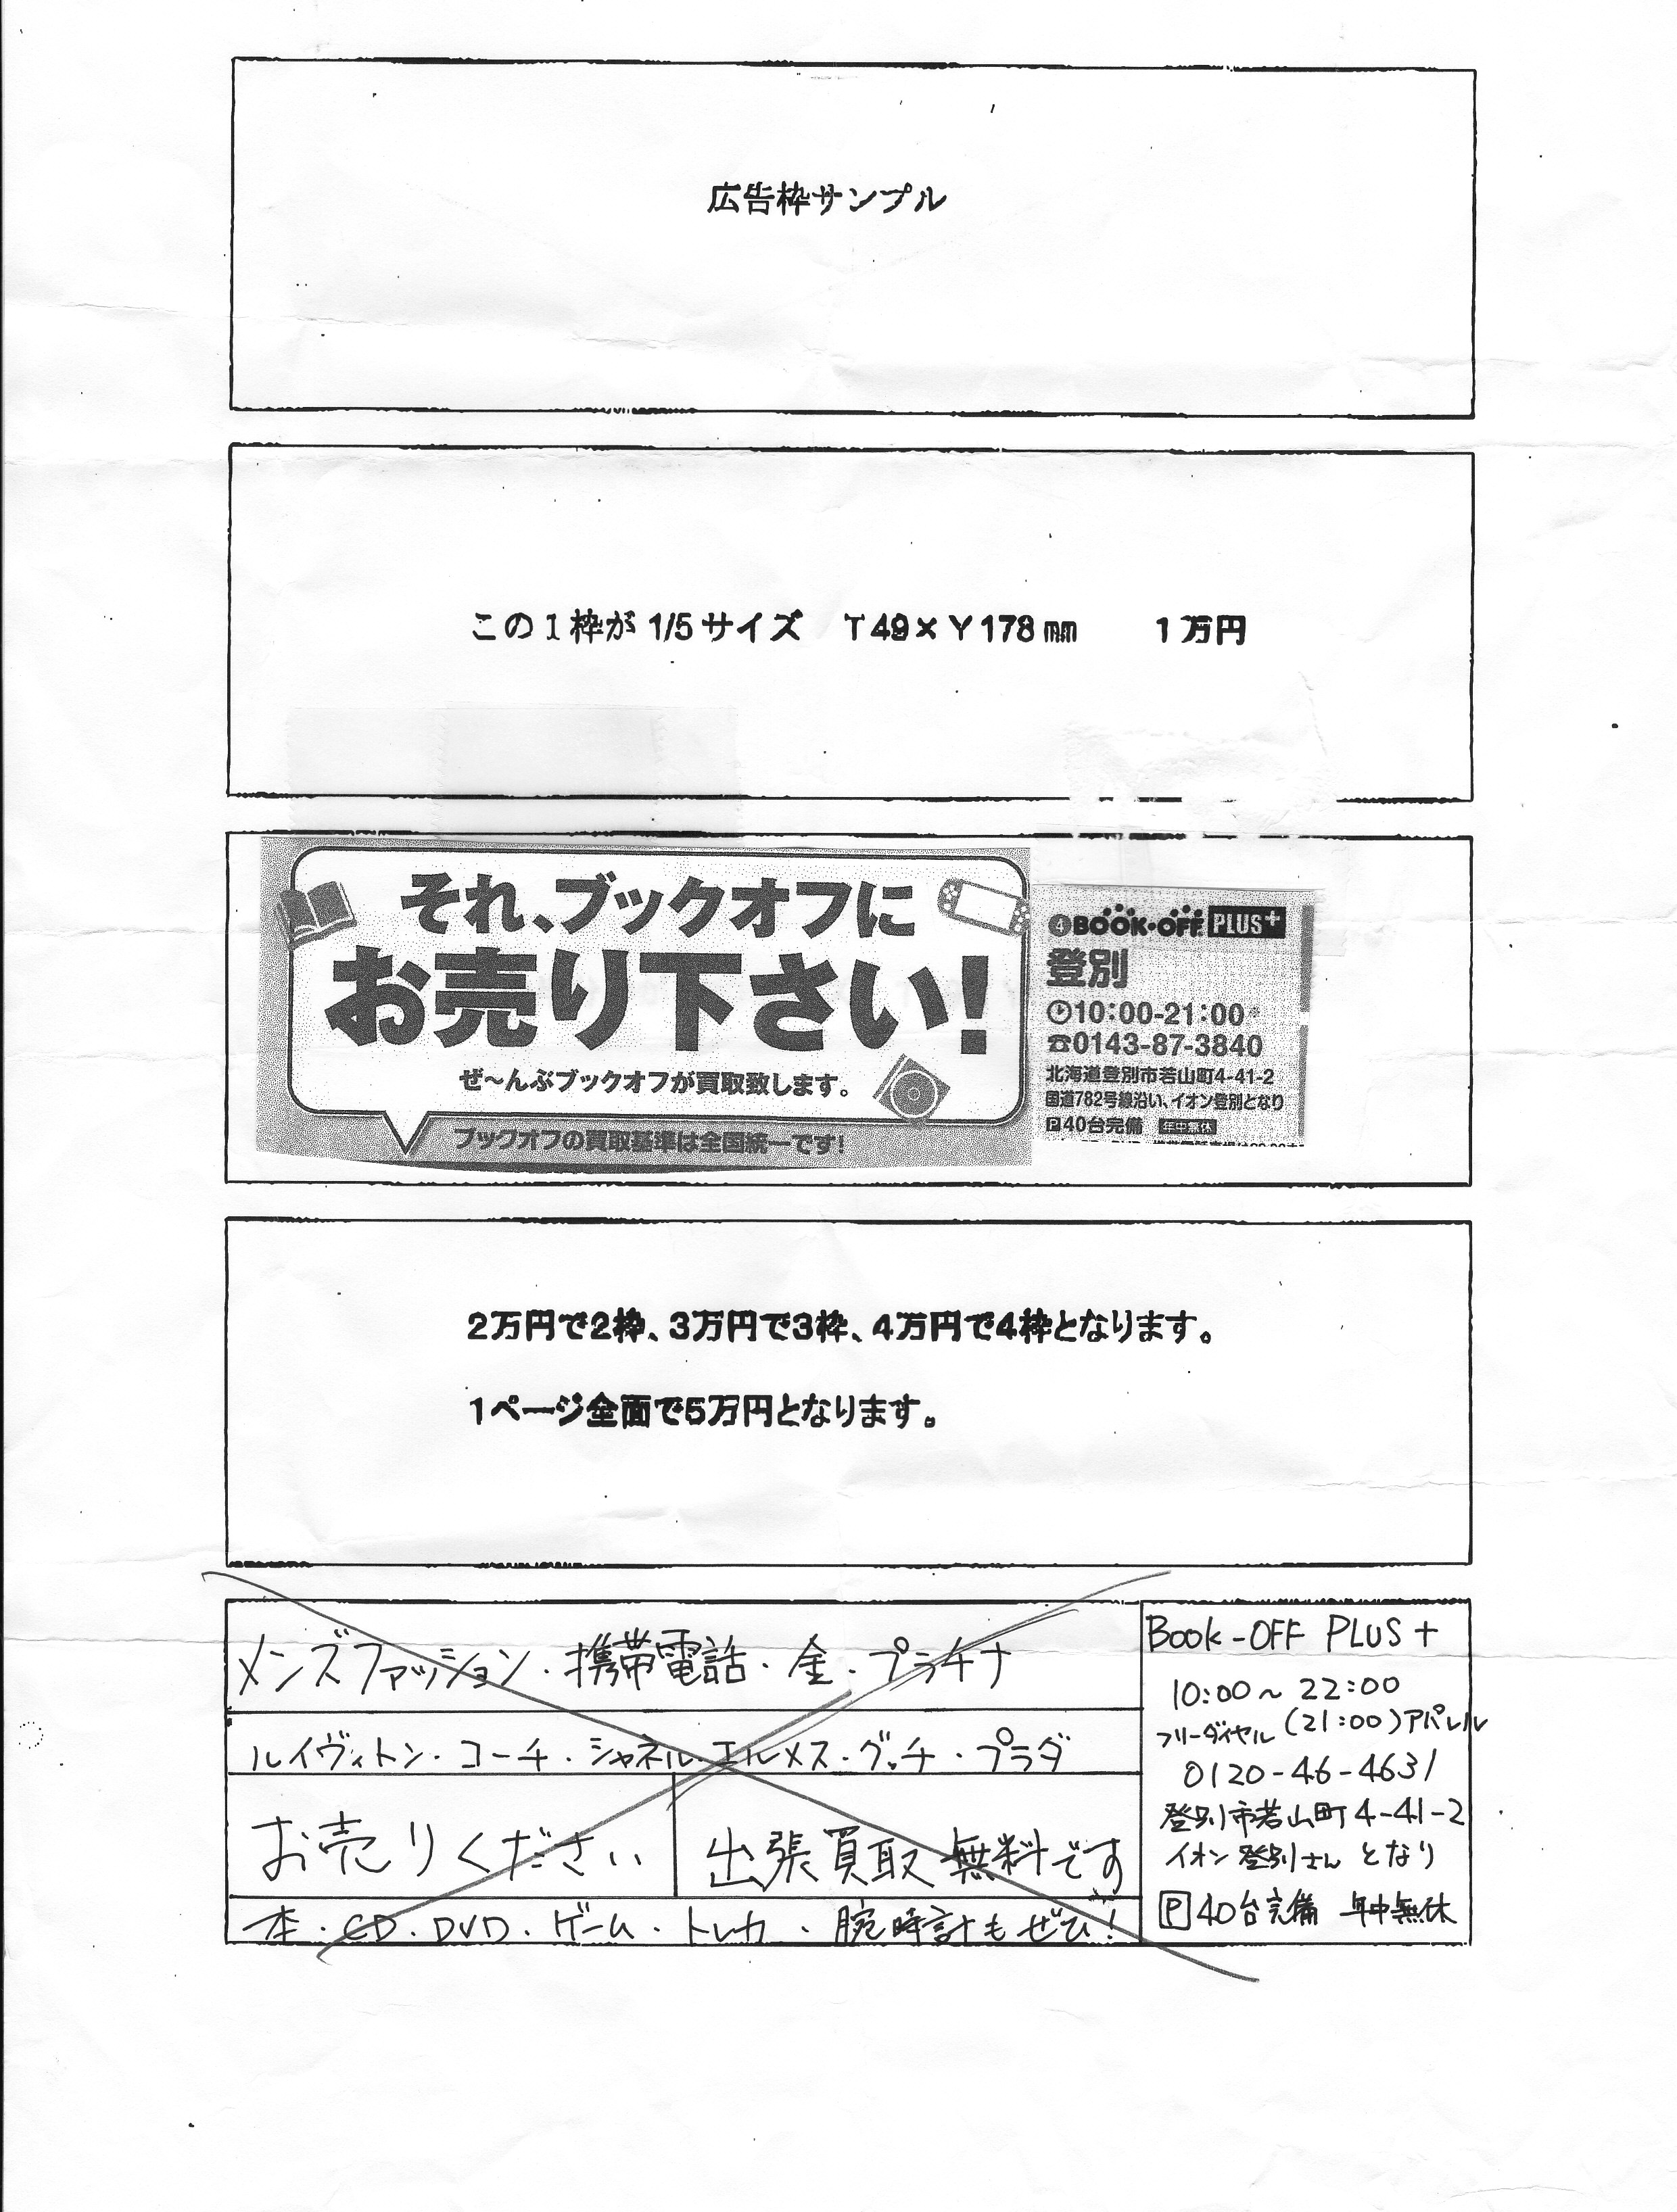 広告枠サンプル
この1枠が1/5サイズ　T49×Y178㎜　　1万円
それ、ブックオフに
お売り下さい!
ぜ～んぶブックオフが買取致します。
ブックオフの買取基準は全国統一です!
④BOOK・OFF PLUS+
登別
10:00-21:00※
☎0143-87-3840
北海道登別市若山町4-41-2
国道782号線沿い、イオン登別となり
P40台完備 年中無休
2万円で2枠、3万円で3枠、4万円で4枠となります。
1ページ全面で5万円となります。
メンズファッション・携帯電話・金・プラチナ
ルイヴィトン・コーチ・シャネル・エルメス・グッチ・プラダ
お売りください
出張買取無料です
本・CD・DVD・ゲーム・トレカ・腕時計もぜひ!
Book-OFF PLUS+
10:00～22:00
(21:00)アパレル
フリーダイヤル
0120-46-4631
登別市若山町4-41-2
イオン登別さんとなり
P40台完備 年中無休